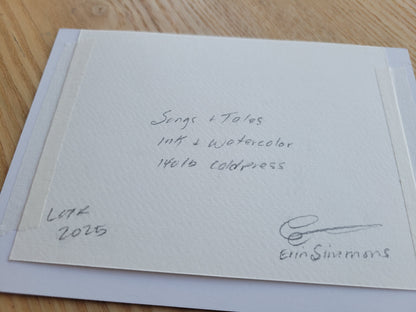 Songs + Tales
Ink + Watercolor
140lb Coldpress
LOTR
2025
Erin Simmons